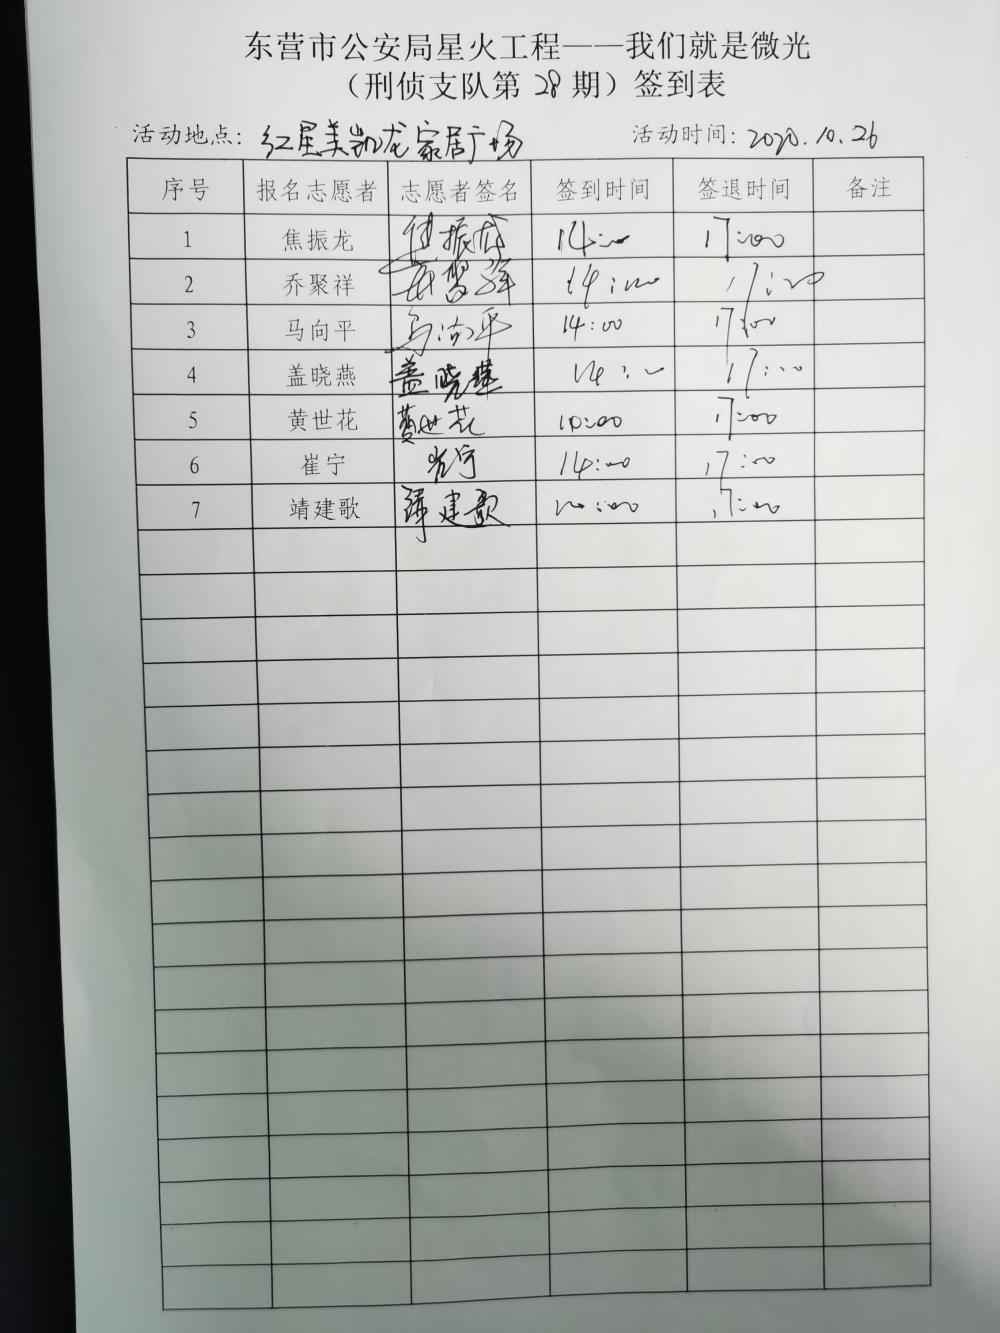 东营市公安局星火工程——我们就是微光
（刑侦支队第 28 期）签到表
活动地点：红星美凯龙家居广场 活动时间：2020.10.26
序号 报名志愿者 志愿者签名 签到时间 签退时间 备注
1 焦振龙 焦振龙 14:00 17:00
2 乔聚祥 乔聚祥 14:00 17:00
3 马向平 马向平 14:00 17:00
4 盖晓燕 盖晓燕 14:00 17:00
5 黄世花 黄世花 10:00 17:00
6 崔宁 崔宁 14:00 17:00
7 靖建歌 靖建歌 17:00